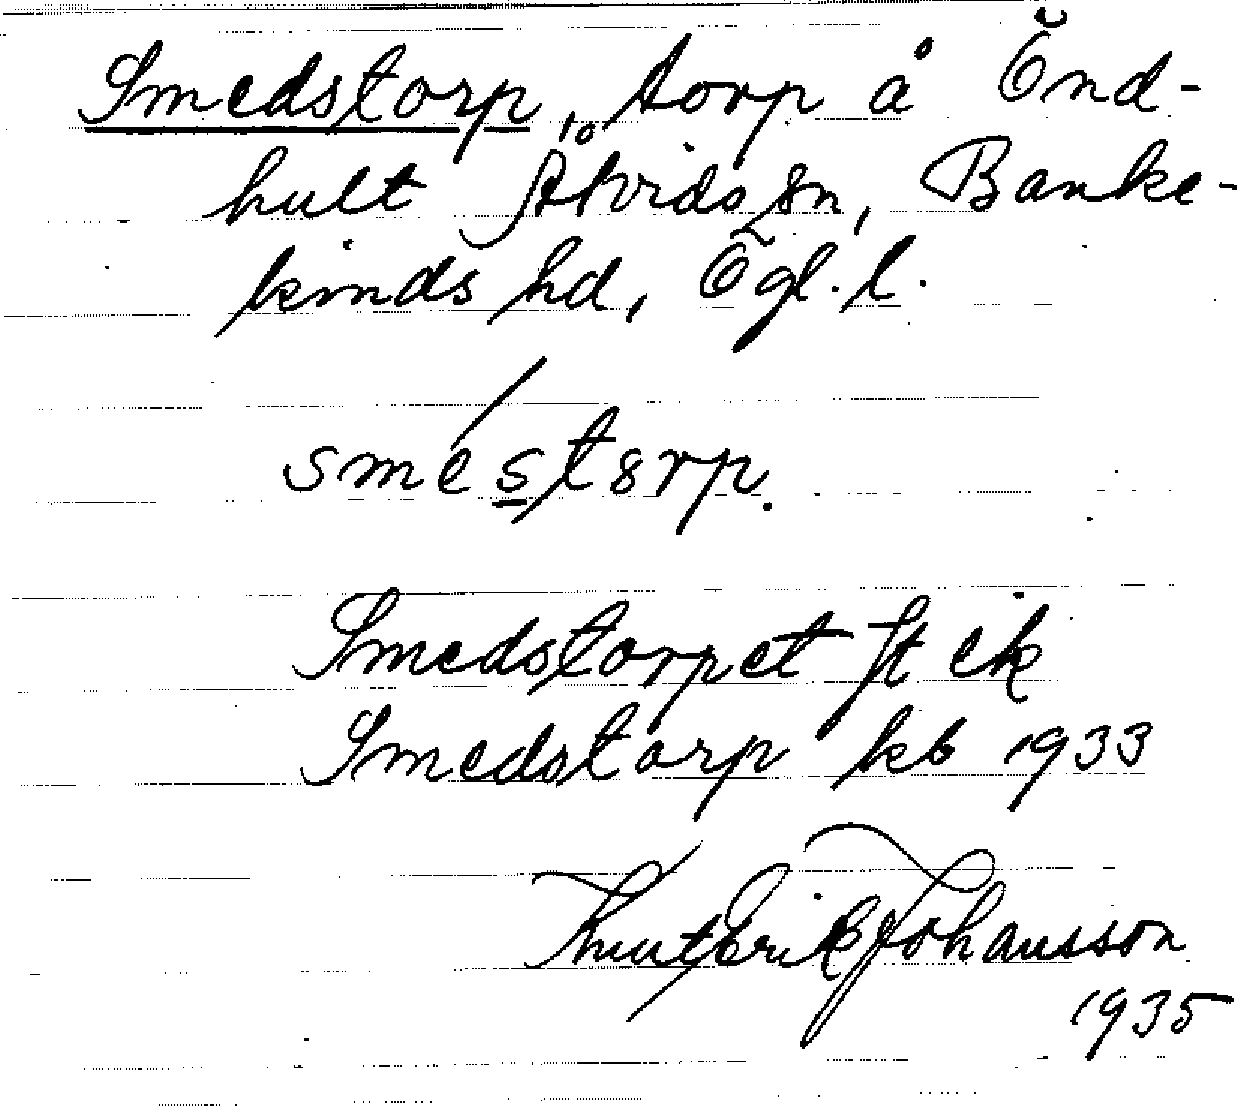 Smedstorp, torp å Önd-
hult Åtvids sn, Banke-
kinds hd, Ögl. l.
smestorp.
Smedstorpet ft ek
Smedstorp kb 1933
Knut Erik Johansson
1935